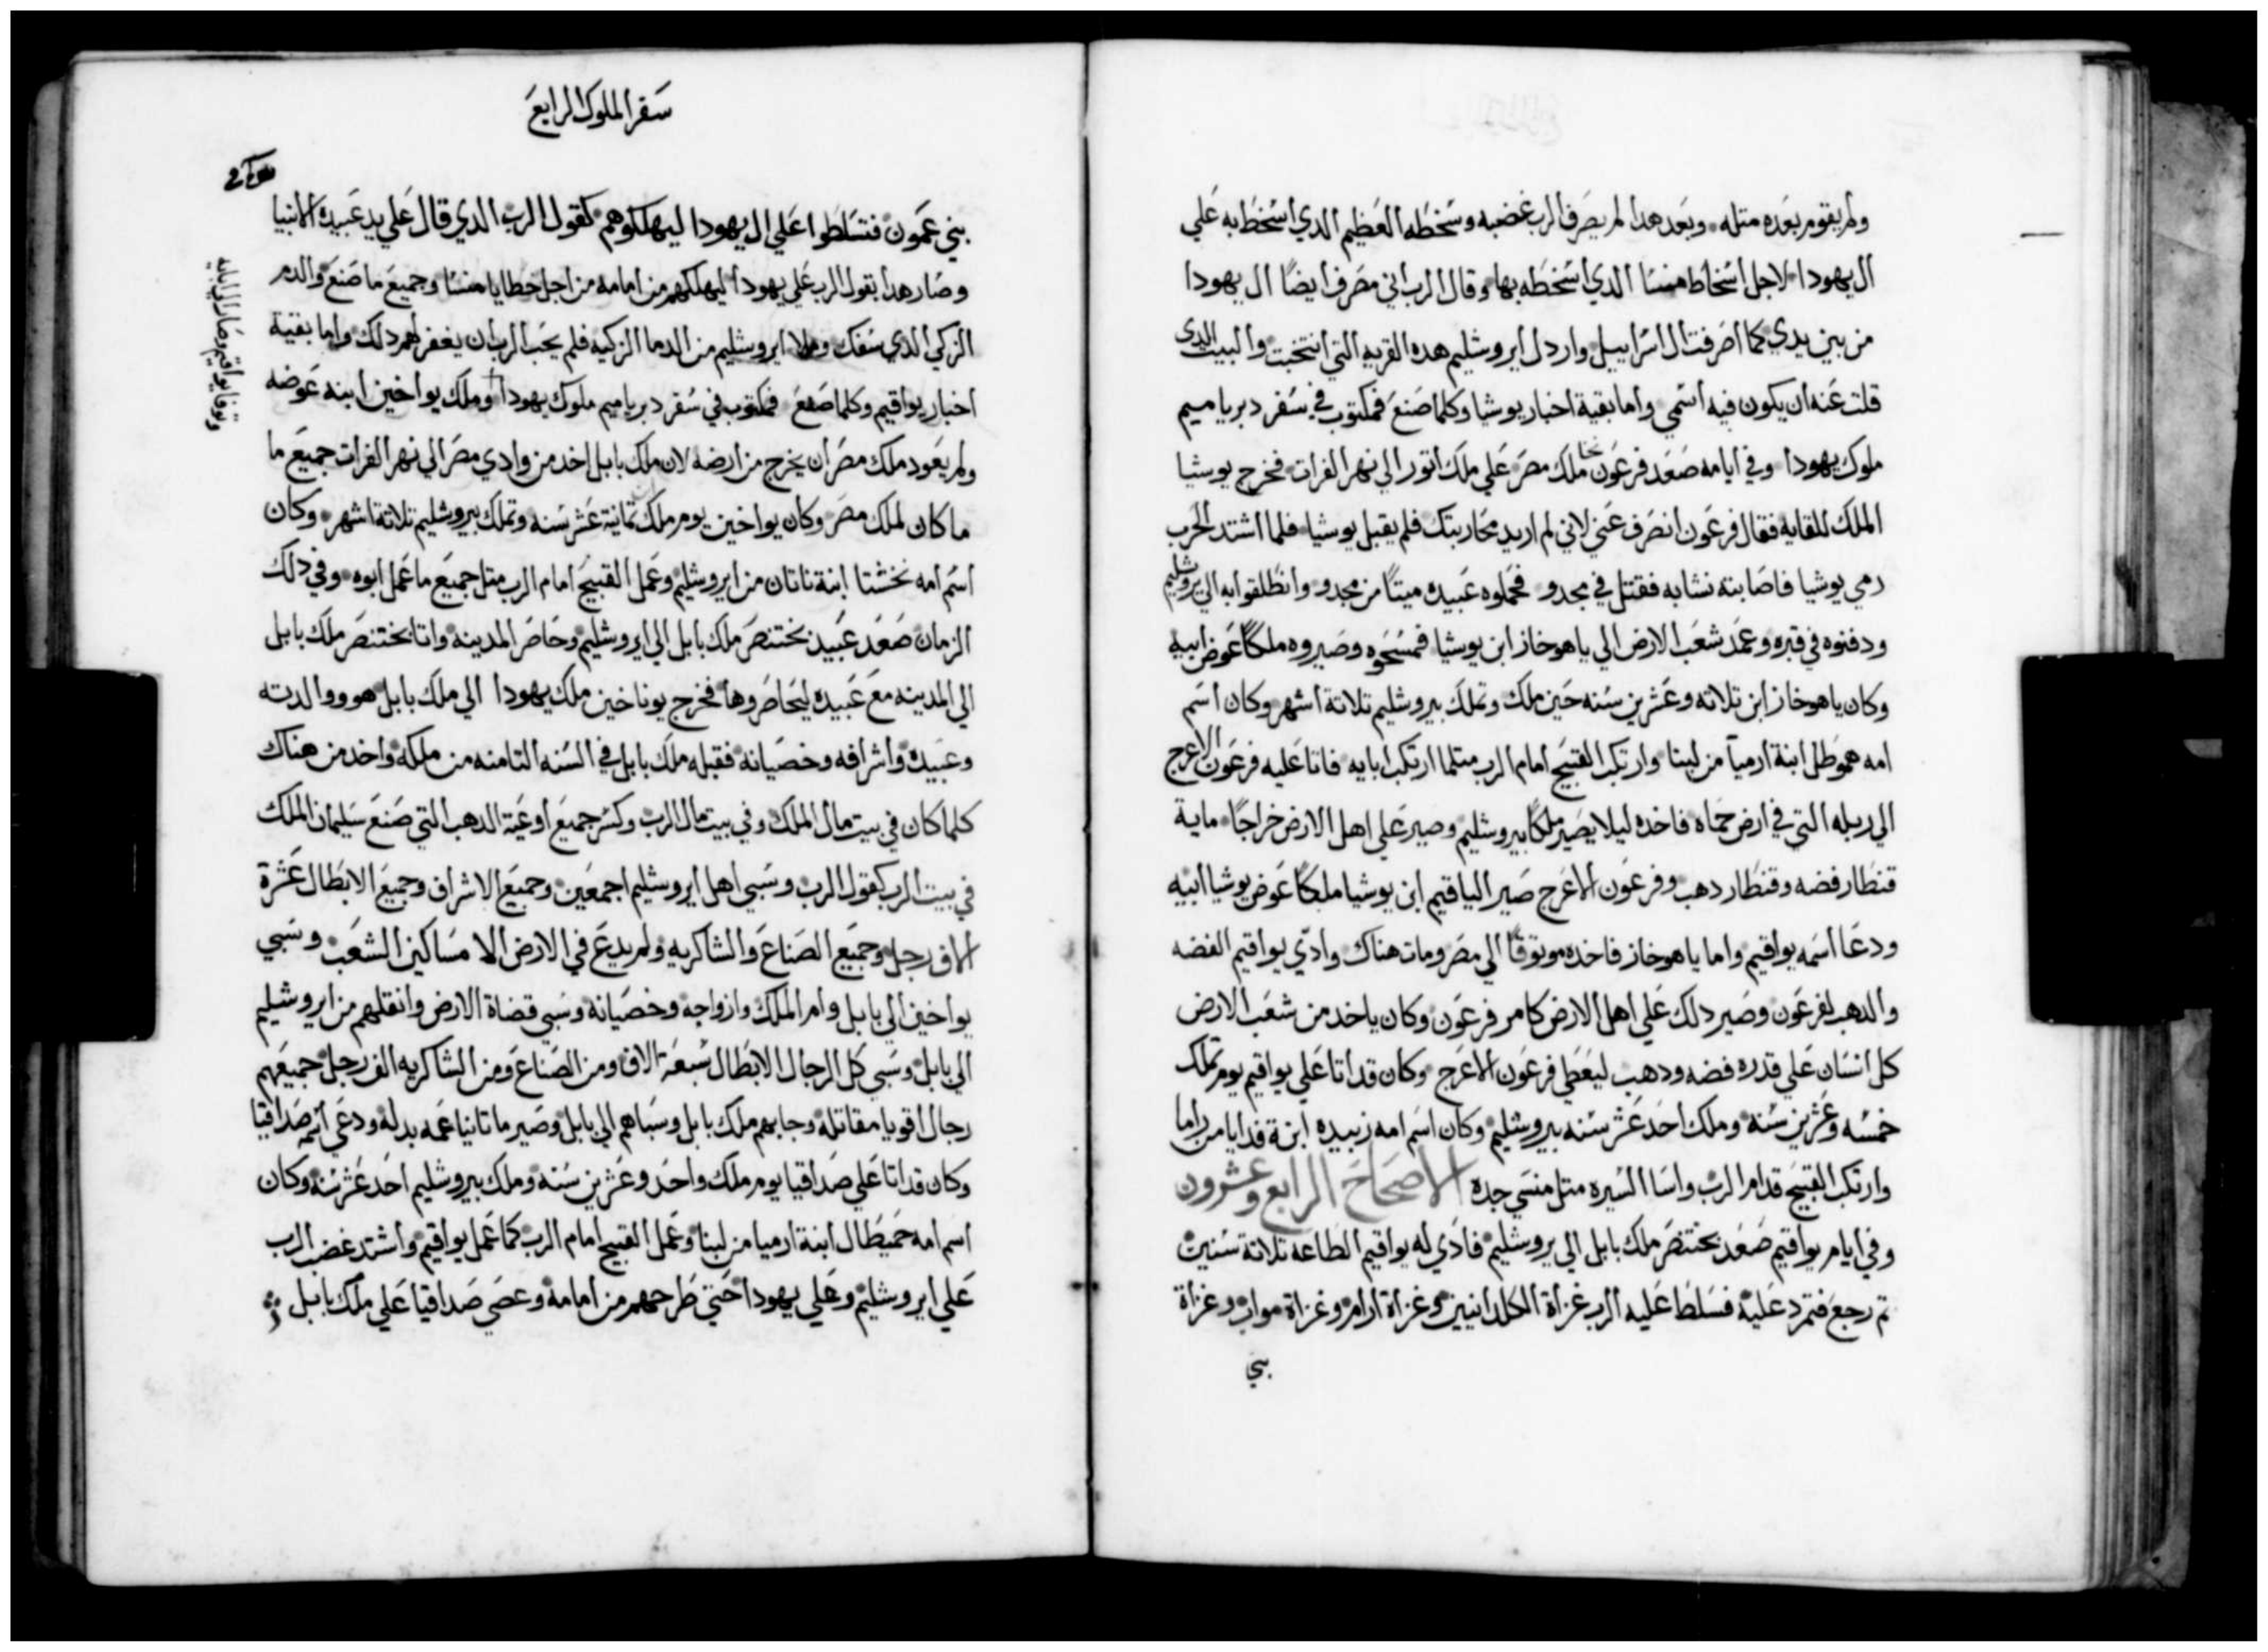 ولم يقوم بعده متله وبعد هدا لم يصرف الرب غضبه وسخطه العظيم الدي اسخط به علي
ال يهودا لاجل اسخاط منسا الدي اسخطه بها وقال الرب اني مصرف ايضًا ال يهودا
من بين يدي كما اصرفت ال اسراييل واردل ايروشليم هده القريه التي انتخبت والبيت الدي
قلت عنه ان يكون فيه اسمي واما بقية اخبار يوشيا وكلما صنع فمكتوب في سفر دبرياميم
ملوك يهودا وفي ايامه صعد فرعون نخا ملك مصر علي ملك اتور الي نهر الفرات فخرج يوشيا
الملك للقايه فقال فرعون انصرف عني لاني لم اريد محاربتك فلم يقبل يوشيا فلما اشتد الحرب
رمي يوشيا فاصابته نشابه فقتل في مجدو فحملوه عبيده ميتًا من مجدو وانطلقوا به الي يروشليم
ودفنوه في قبره وعمد شعب الارض الي ياهوخاز ابن يوشيا فمسحوه وصيروه ملكًا عوض ابيه
وكان ياهوخاز ابن تلاته وعشرين سنه حين ملك وتملك بيروشليم تلاتة اشهر وكان اسم
امه هموطل ابنة ارميا من لبنا وارتكب القبيح امام الرب متلما ارتكب ابايه فاتا عليه فرعون الاعرج
الي ربله التي في ارض حماه فاخده ليلا يصير ملكًا بيروشليم وصير علي اهل الارض خراجًا ماية
قنطار فضه وقنطار دهب وفرعون الاعرج صير الياقيم ابن يوشيا ملكًا عوض يوشيا ابيه
ودعا اسمه يواقيم واما ياهوخاز فاخده موتوقًا الي مصر ومات هناك وادي يواقيم الفضه
والدهب لفرعون وصير دلك علي اهل الارض كامر فرعون وكان ياخد من شعب الارض
كل انسان علي قدره فضه ودهب ليعطي فرعون الاعرج وكان قد اتا علي يواقيم يوم تملك
خمسه وعشرين سنه وملك احد عشر سنه بيروشليم وكان اسم امه زبيده ابنة فدايا من راما
وارتكب القبيح قدام الرب واسا السيره متل منسي جده الاصحاح الرابع وعشرون
وفي ايام يواقيم صعد بختنصر ملك بابل الي يروشليم فادي له يواقيم الطاعه تلاتة سنين
تم رجع فتمرد عليه فسلط عليه الرب غزاة الكلدانيين وغزاة ارام وغزاة مواب وغزاة
بني
سفر الملوك الرابع
بني عمون فتسلطوا علي ال يهودا ليهلكوهم كقول الرب الدي قال علي يد عبيده الانبيا
وصار هدا بقول الرب علي يهودا ليهلكهم من امامه من اجل خطايا منسا وجميع ما صنع والدم
الزكي الدي سفك وملا ايروشليم من الدما الزكيه فلم يحب الرب ان يغفر لهم دلك واما بقية
اخبار يواقيم وكلما صنع فمكتوب في سفر دبرياميم ملوك يهودا وملك يواخين ابنه عوضه
وتوفا يواقيم وصار الي ابايه
ولم يعود ملك مصر ان يخرج من ارضه لان ملك بابل اخد من وادي مصر الي نهر الفرات جميع ما
ما كان لملك مصر وكان يواخين يوم ملك تمانية عشر سنه وتملك بيروشليم تلاتة اشهر وكان
اسم امه نخشتا ابنة ناتان من ايروشليم وعمل القبيح امام الرب متل جميع ما عمل ابوه وفي دلك
الزمان صعد عبيد بختنصر ملك بابل الي ايروشليم وحاصر المدينه واتا بختنصر ملك بابل
الي المدينه مع عبيده ليحاصروها فخرج يوناخين ملك يهودا الي ملك بابل هو ووالدته
وعبيده واشرافه وخصيانه فقبله ملك بابل في السنه التامنه من ملكه واخد من هناك
كلما كان في بيت مال الملك وفي بيت مال الرب وكسر جميع اوعية الدهب التي صنع سليمان الملك
في بيت الرب كقول الرب وسبي اهل ايروشليم اجمعين وجميع الاشراف وجميع الابطال عشرة
الاف رجل وجميع الصناع والشاكريه ولم يدع في الارض الا مساكين الشعب وسبي
يواخين الي بابل وام الملك وازواجه وخصيانه وسبي قضاة الارض وانقلهم من ايروشليم
الي بابل وسبي كل الرجال الابطال سبعة الاف ومن الصناع ومن الشاكريه الف رجل جميعهم
رجال اقويا مقاتله وجابهم ملك بابل وسباهم الي بابل وصير ماتانيا عمه بدله ودعي اسمه صداقيا
وكان قد اتا علي صداقيا يوم ملك واحد وعشرين سنه وملك بيروشليم احد عشر سنه وكان
اسم امه حميطال ابنة ارميا من لبنا وعمل القبيح امام الرب كما عمل يواقيم واشتد غضب الرب
علي ايروشليم وعلي يهودا حتي طرحهم من امامه وعصي صداقيا علي ملك بابل